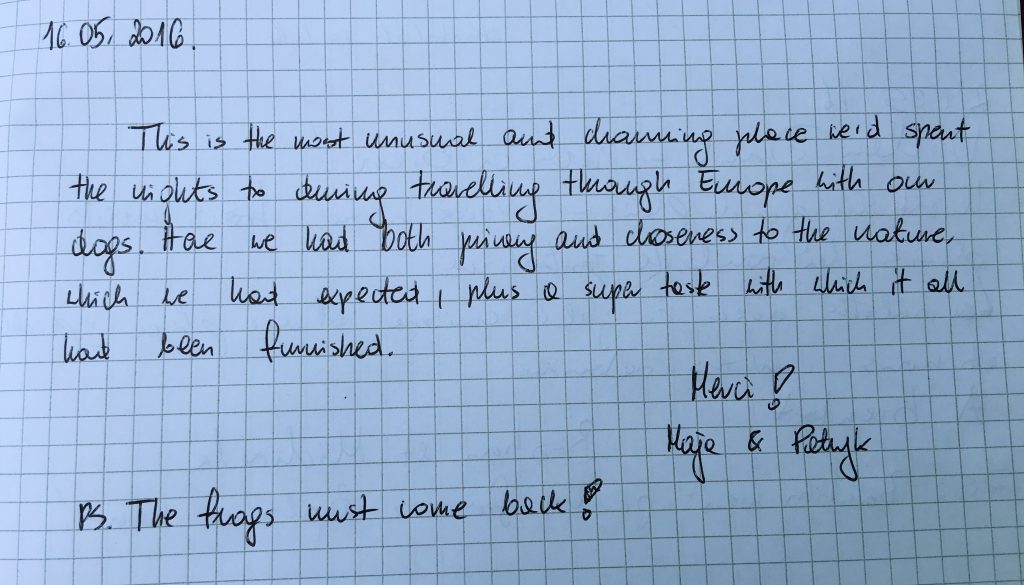 16.05.2016.
This is the most unusual and charming place we'd spent
the nights to during travelling through Europe with our
dogs. Here we had both privacy and choseness to the nature,
which we had expected, plus a super taste with which it all
had been furnished.
Merci!
Maja & Patryk
PS. The frogs must come back!